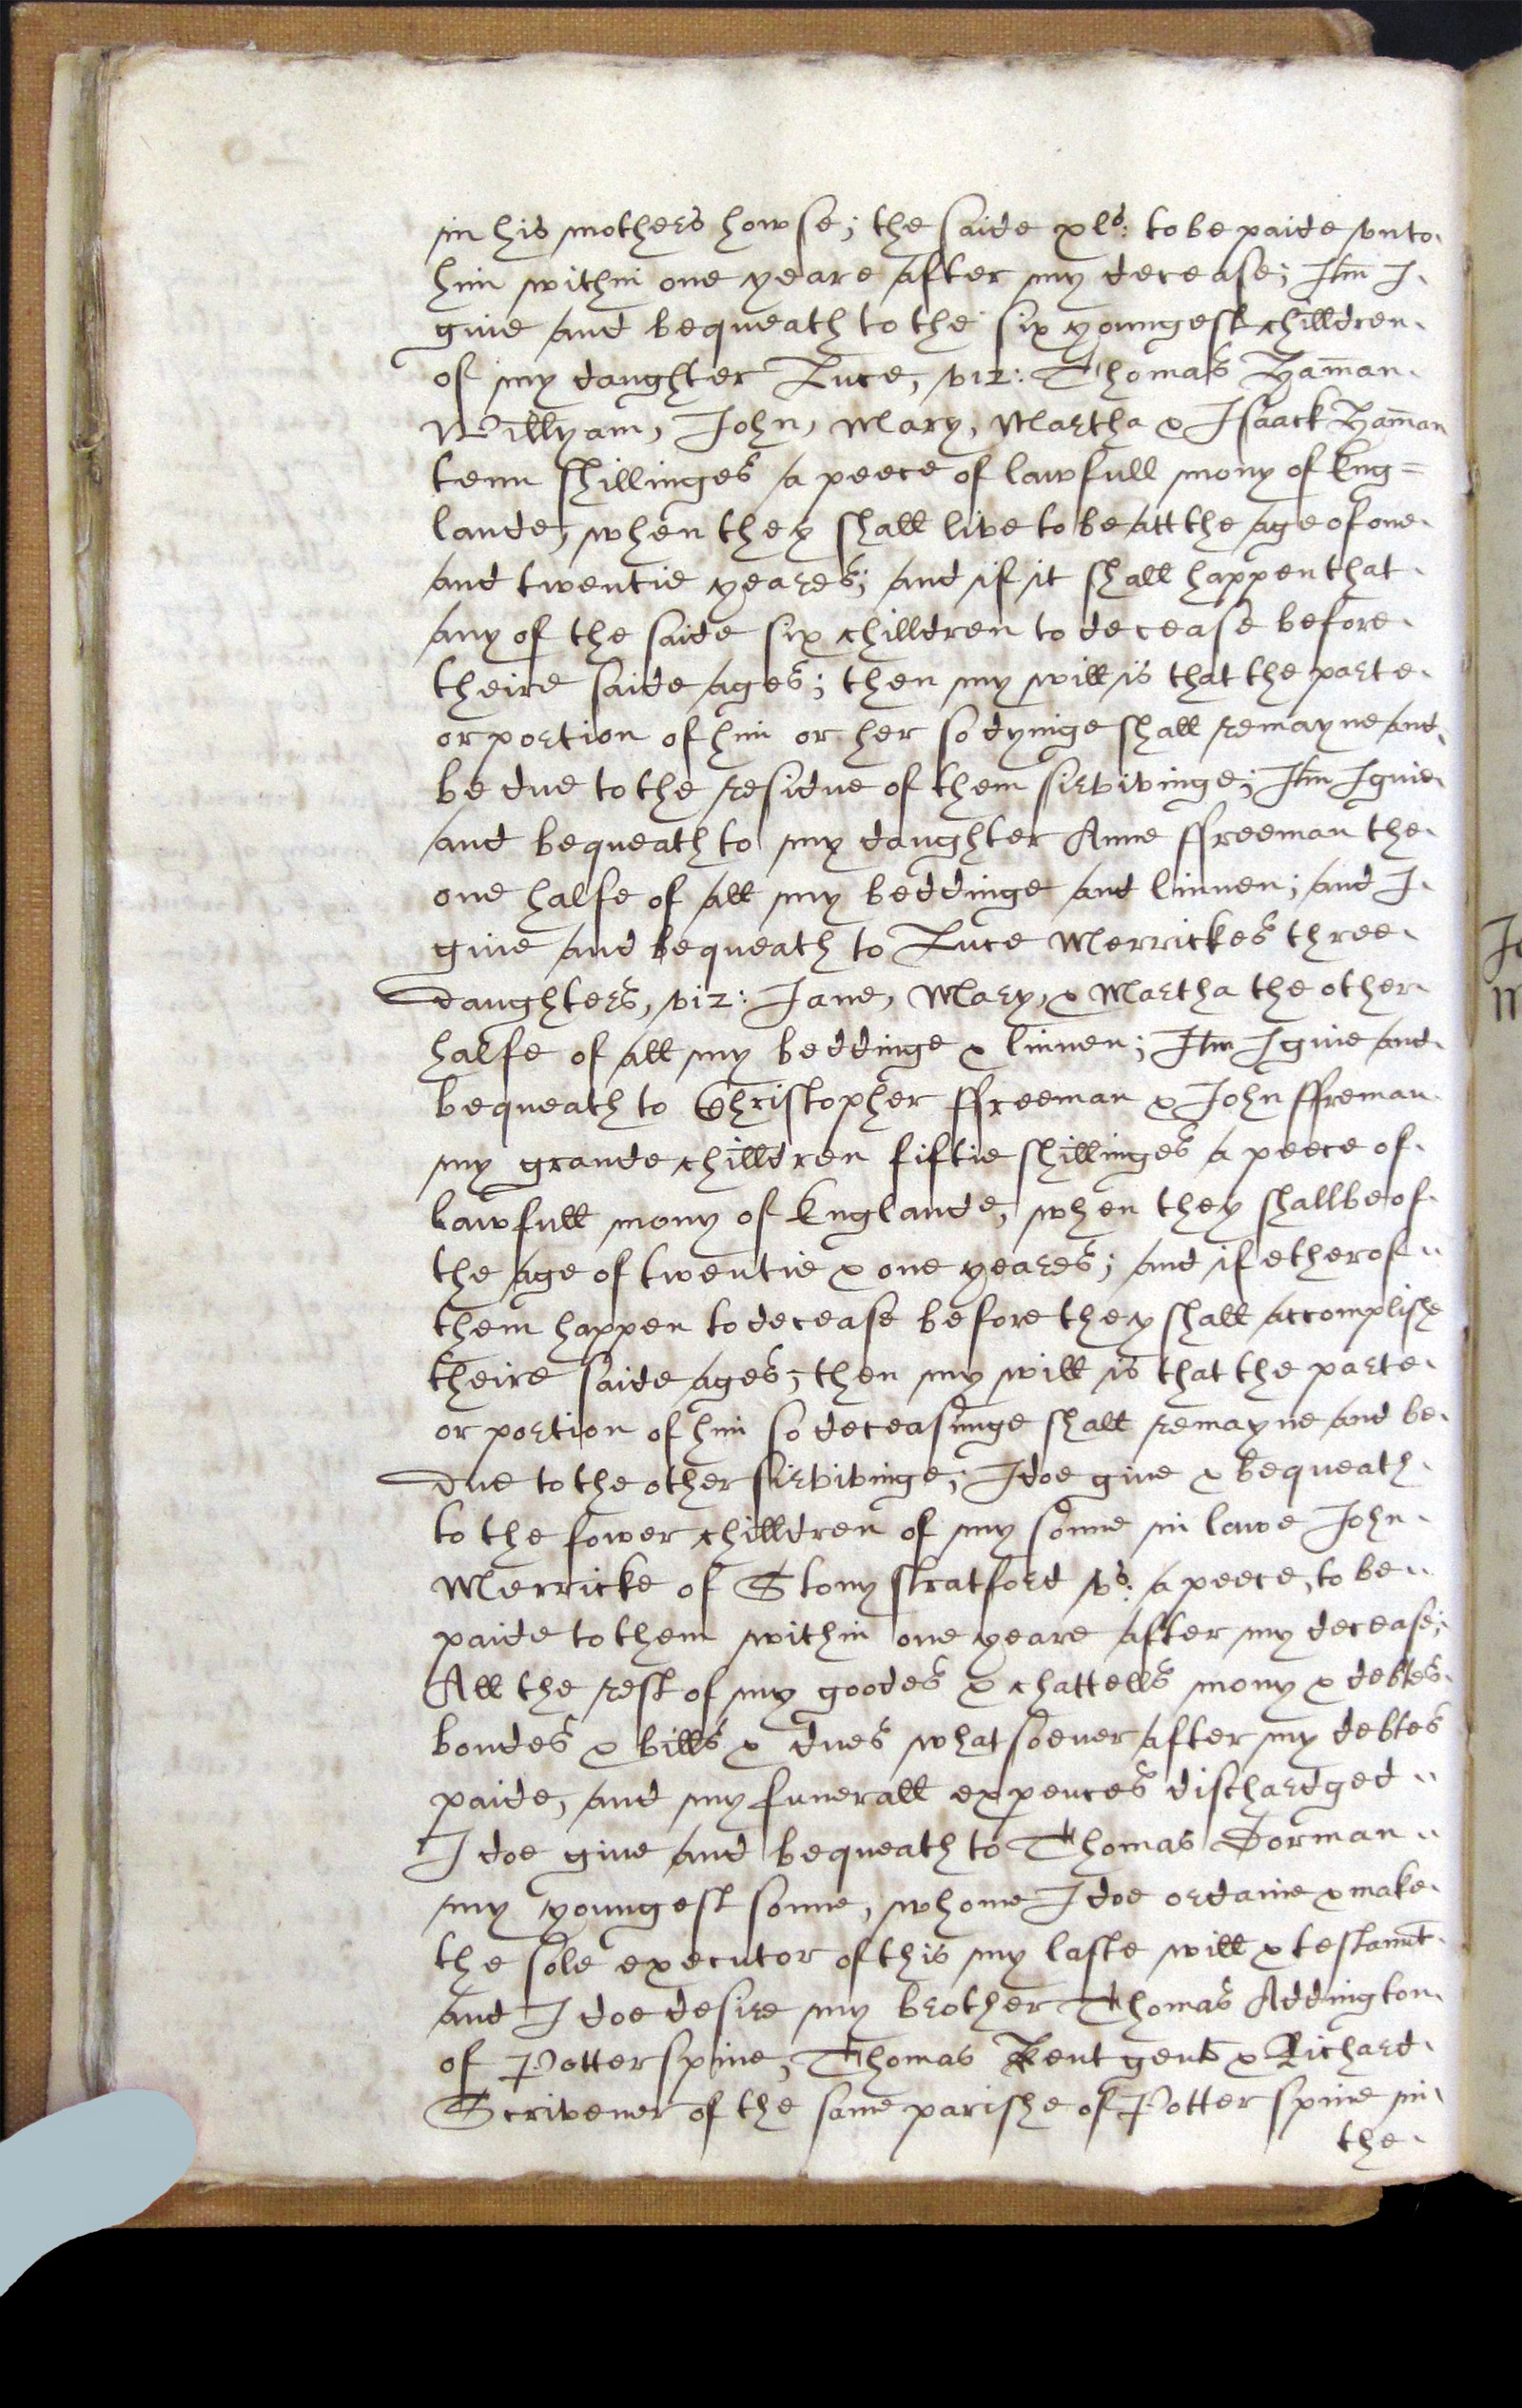 in his mothers howse; the saide xls: to be paide vnto
him within one yeare after my decease; Itm I
giue and bequeath to the six youngest chilldren
of my daughter Luce, viz: Thomas Yaman
Willyam, John, Mary, Martha & Isaack Yaman
tenn shillinges a peece of lawfull mony of Eng=
lande, when they shall live to be att the age of one
and twentie yeares; and if it shall happen that
any of the saide six chilldren to decease before
theire saide ages; then my will is that the parte
or portion of him or her so dyinge shall remayne and
be due to the residue of them sirvivinge; Itm I giue
and bequeath to my daughter Anne ffreeman the
one halfe of all my beddinge and linnen; and I
giue and bequeath to Luce Merrickes three
daughters, viz: Jane, Mary, & Martha the other
halfe of all my beddinge & linnen; Itm I giue and
bequeath to Christopher ffreeman & John ffreman
my grande chilldren fiftie shillinges a peece of
lawfull mony of Englande, when they shall be of
the age of twentie & one yeares; and if ether of
them happen to decease before they shall accomplishe
theire saide ages; then my will is that the parte
or portion of him so deceasinge shall remayne and be
due to the other sirvivinge; I doe giue & bequeath
to the fower chilldren of my sonne in lawe John
Merricke of Stony stratford vs: a peece, to be
paide to them within one yeare after my decease;
All the rest of my goodes & chattells mony & debtes
bondes & bills & dues whatsoeuer after my debtes
paide, and my funerall expences dischardged
I doe giue and bequeath to Thomas Dorman
my youngest sonne, whome I doe ordaine & make
the sole executor of this my laste will & testamt
and I doe desire my brother Thomas Addington
of Potterspine, Thomas Kent gent & Richard
Scrivener of the same parishe of Potterspine in
the